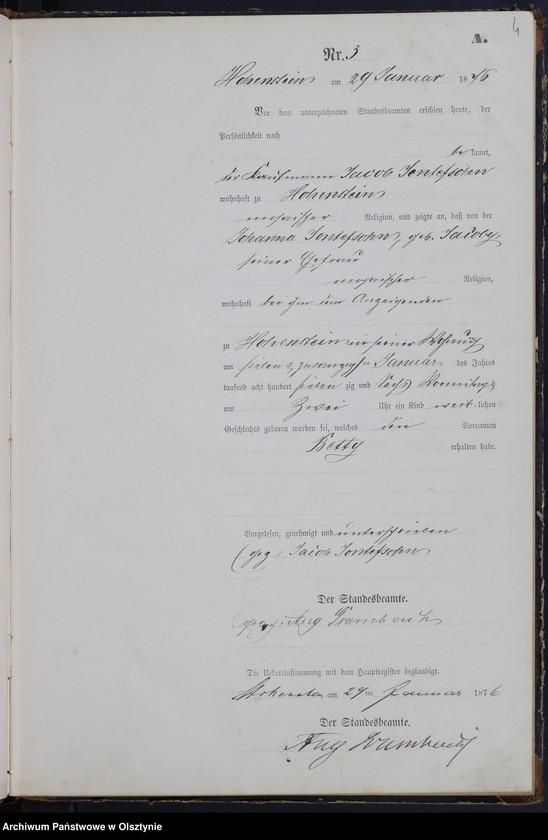 4
A.
Nr. 3
Hohenstein am 29 Januar 1876
Vor dem unterzeichneten Standesbeamten erschien heute, der
Persönlichkeit nach
bekannt,
der Kaufmann Jacob Jontofsohn
wohnhaft zu Hohenstein
mosaischer Religion, und zeigte an, daß von der
Johanna Jontofsohn, geb. Jacoby
seiner Ehefrau
mosaischer Religion,
wohnhaft bei ihm dem Anzeigenden
zu Hohenstein in seiner Wohnung
am sieben u. zwanzigsten Januar des Jahres
tausend acht hundert siebenzig und sechs Vormittags
um Zwei Uhr ein Kind weiblichen
Geschlechts geboren worden sei, welches den Vornamen
Betty erhalten habe.
Vorgelesen, genehmigt und unterschrieben
(gez) Jacob Jontofsohn
Der Standesbeamte.
Aug
Die Uebereinstimmung mit dem Hauptregister beglaubigt.
Hohenstein am 29ten Januar 1876
Der Standesbeamte.
Aug
Archiwum Państwowe w Olsztynie